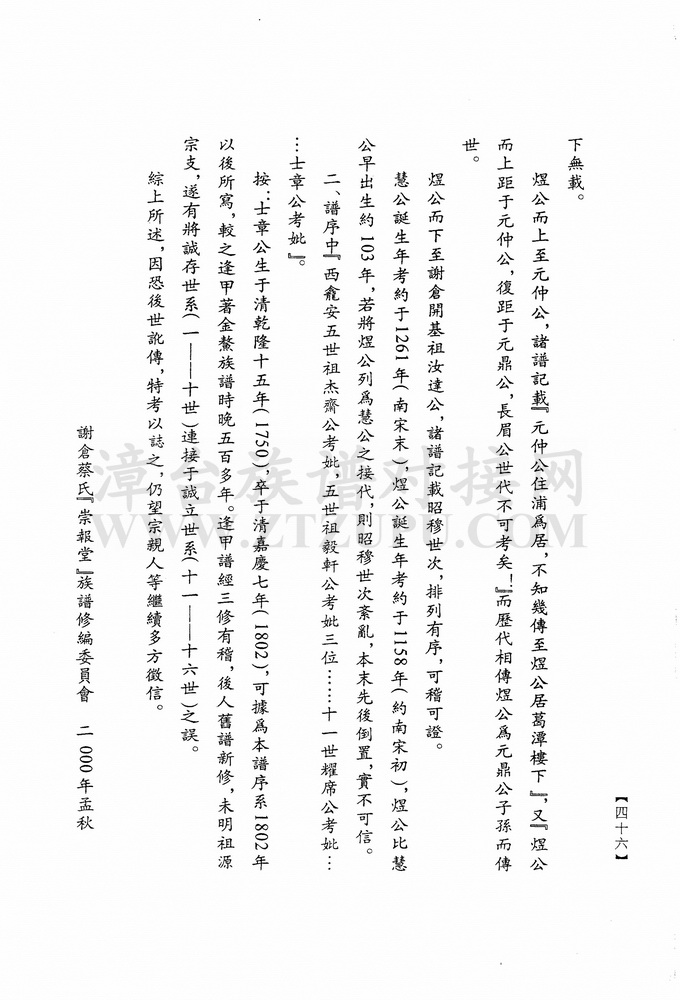 下無載。
煜公而上至元仲公，諸譜記載『元仲公住浦爲居，不知幾傳至煜公居葛潭樓下』，又『煜公
而上距于元仲公，復距于元鼎公，長眉公世代不可考矣！』而歷代相傳煜公爲元鼎公子孫而傳
世。
煜公而下至謝倉開基祖汝達公，諸譜記載昭穆世次，排列有序，可稽可證。
慧公誕生年考約于1261年(南宋末)，煜公誕生年考約于1158年(約南宋初)，煜公比慧
公早出生約103年，若將煜公列爲慧公之接代，則昭穆世次紊亂，本末先後倒置，實不可信。
二、譜序中『西龕安五世祖杰齋公考妣，五世祖毅軒公考妣三位……十一世耀席公考妣…
…士章公考妣』。
按：士章公生于清乾隆十五年(1750)，卒于清嘉慶七年(1802)，可據爲本譜序系1802年
以後所寫，較之逢甲著金鰲族譜時晚五百多年。逢甲譜經三修有稽，後人舊譜新修，未明祖源
宗支，遂有將誠存世系(一——十世)連接于誠立世系(十一——十六世)之誤。
綜上所述，因恐後世訛傳，特考以誌之，仍望宗親人等繼續多方徵信。
謝倉蔡氏『崇報堂』族譜修編委員會　二000年孟秋
【四十六】
漳台族谱对接网
WWW.ZTZUPU.COM